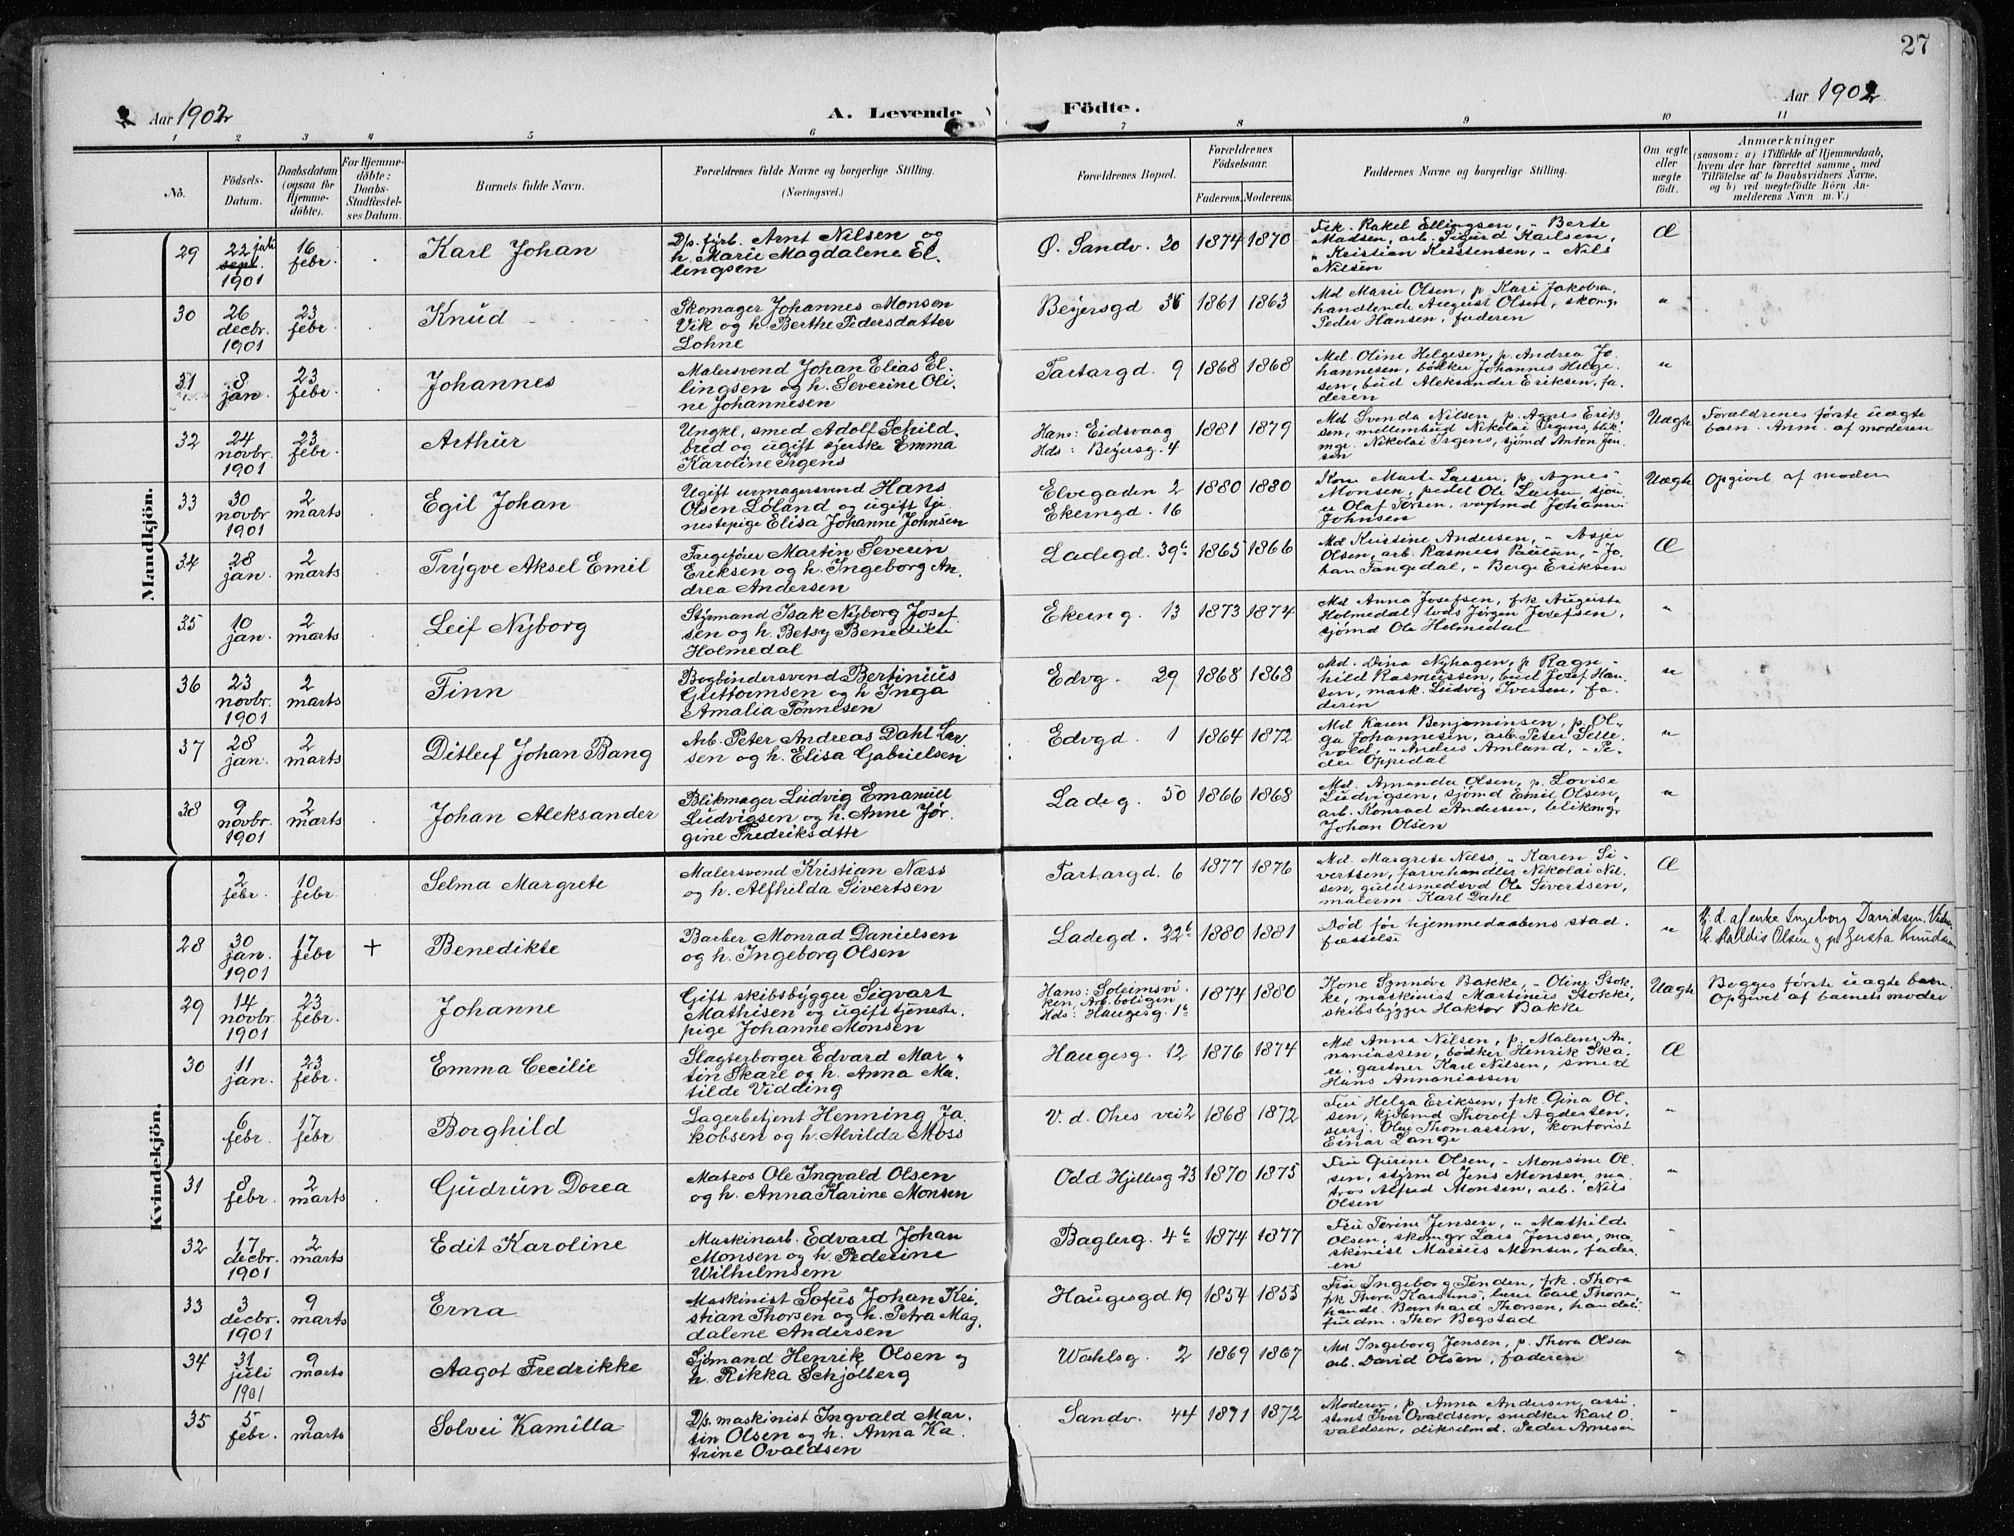 27
Aar 1902
A. Levende Födte.
Aar 1902
1 2 3 4 5 6 7 8 9 10 11
No.
Födsels-Datum.
Daabsdatum (ogsaa for Hjemme-döbte).
For Hjemme-döbte: Daabs-Stadfæstel-ses Datum.
Barnets fulde Navn.
Forældrenes fulde Navne og borgerlige Stilling.
(Næringsvei.)
Forældrenes Bopæl.
Forældrenes Födselsaar.
Faderens. Moderens.
Faddernes Navne og borgerlige Stilling.
Om ægte eller uægte födt.
Anmærkninger
(saasom: a) i Tilfælde af Hjemmedaab, hvem der har forrettet samme, med Tilföielse af to Daabsvidners Navne, og b) ved uægtefödte Börn An-melderens Navn m. V.)
Mandkjön.
29 22 juli sept. 1901 16 febr. Karl Johan
D/p. fyrb. Arnt Nilsen og
h. Marie Magdalene El-
lingsen
Ø. Sandv. 20 1874 1870
Frk. Rakel Ellingsen, " Berte
Madsen, arb. Sigurd Karlsen,
" Kristian Kristensen, " Nils
Nilsen
Æ
30 26 decbr. 1901 23 febr. Knud
Skomager Johannes Monsen
Vik og h. Berthe Pedersdatter
Lohne
Beyersgd 36 1861 1863
Md Marie Olsen, p Kari Jakobsen
handlende August Olsen, skomgr
Peder Hansen, faderen
"
31 8 jan. 23 febr. Johannes
Malersvend Johan Elias El-
lingsen og h. Severine Oli-
ne Johannesen
Tartargd. 9 1868 1868
Md. Oline Helgesen, p. Andrea Jo-
hannesen, bödker Johannes Helge-
sen, bud Aleksander Eriksen, fa-
deren
"
32 24 novbr. 1901 23 febr. Arthur
Ungkl. smed Adolf Schild-
bred og ugift syerske Emma
Karoline Irgens
Hans: Eidsvaag
Hds: Beyersg. 4
1881 1879
Md Svenda Nilsen, p. Agnes Erik-
sen, mellembud Nikolai Irgens, blik-
mgr. Nikolai Irgens, sjömd Anton Jen-
sen
Uægte
Forældrenes første uægte
barn. Anm. af moderen
33 30 novbr 1901 2 marts Egil Johan
Ugift urmagersvend Hans
Olsen Løland og ugift tje-
nestepige Elisa Johanne Johnsen
Elvegaden 2
Ekerngd. 16
1880 1880
Kone Marit Larsen, p. Agnes
Monsen, pedel Ole Larsen
Olaf Torsen, vagtmd Johan
Johnsen
Uægte
Opgivet af moder
34 28 jan. 2 marts Trygve Aksel Emil
Færgefører Martin Severin
Eriksen og h. Ingeborg An-
drea Andersen
Ladegd. 39b 1865 1866
Md Kristine Andersen, " Asjer
Olsen, arb. Rasmus Paulsen, " Jo-
han Tangedal, " Berge Eriksen
Æ
35 10 jan. 2 marts Leif Nyborg
Styrmand Isak Nyborg Josef-
sen og h. Betsy Benedikte
Holmedal
Ekerng. 13 1873 1874
Md Anna Josefsen, frk Augusta
Holmedal, lods Jörgen Josefsen,
sjømd Ole Holmedal
"
36 23 novbr. 1901 2 marts Finn
Bogbindersvend Bertinius
Guttormsen og h. Inga
Amalia Tönnesen
Edvg. 29 1868 1868
Md. Dina Nyhagen, p Ragn-
hild Rasmussen, bud Josef Han-
sen, mask. Ludvig Iversen, fa-
deren
"
37 28 jan. 2 marts Ditleif Johan Bang
Arb. Peter Andreas Dahl Lar-
sen og h. Elisa Gabrielsen
Edvgd. 1 1864 1872
Md Karen Benjaminsen, p. Ol-
ga Johannesen, arb. Peter Selle-
vold, " Anders Amland, " Pe-
der Oppedal
"
38 9 novbr. 1901 2 marts Johan Aleksander
Blikmager Ludvig Emanuel
Ludvigsen og h. Anne Jør-
gine Fredriksdttr
Ladeg. 50 1866 1868
Md. Amanda Olsen, p. Lovise
Ludvigsen, sjømd Emil Olsen,
arb. Konrad Andersen, blikmgr
Johan Olsen
"
Kvindekjön.
2 febr. 10 febr. Selma Margrete
Malersvend Kristian Næss
og h. Alfhilda Sivertsen
Tartargd. 6 1877 1876
Md. Margrete Næss, " Karen Si-
vertsen, farvehandler Nikolai Nil-
sen, guldsmedsvd Ole Sivertsen,
malerm. Karl Dahl
Æ
28 30 jan. 1901 17 febr + Benedikte
Barber Monrad Danielsen
og h. Ingeborg Olsen
Ladegd. 22b 1880 1881
Død før hjemmedaabens stad-
fæstelse
"
H. d. af enke Ingeborg Davidsen. Vidner
h. Valdis Olsen og p. Gusta Knudsen
29 14 novbr. 1901 23 febr. Johanne
Gift skibsbygger Sigvart
Mathisen og ugift tjeneste-
pige Johanne Monsen
Hans: Soleimsvi-
ken, Arb.boligen
Hds: Haugesg. 1c
1874 1880
Kone Synnöve Bakke, " Oline Stok-
ke, maskinist Martinus Stokke,
skibsbygger Haktor Bakke
Uægte
Begges første uægte barn.
Opgivet af barnets moder
30 11 jan. 23 febr. Emma Cecilie
Slagterborger Edvard Mar-
tin Skare og h. Anna Ma-
tilde Vidding
Haugesg. 12 1876 1874
Md Anna Nilsen, p. Malene An-
naniassen, bødker Henrik Ska-
re, gartner Karl Nilsen, smed
Hans Annaniassen
Æ
6 febr. 17 febr Borghild
Lagerbetjent Henning Ja-
kobsen og h. Alvilda Moss
V. d. Ohes vei 2 1868 1872
Fru Helga Eriksen, frk. Gina Ol-
sen, kjöbmd Thorolf Agdersen,
sersj. Olai Thomassen, kontorist
Einar Lange
"
31 8 febr. 2 marts Gudrun Dorea
Matros Ole Ingvald Olsen
og h. Anna Karine Monsen
Odd Hjellesg 23 1870 1875
Fru Gurine Olsen, " Monsine Ol-
sen, styrmd Jens Monsen, ma-
tros Alfred Monsen, arb. Nils
Olsen
"
32 17 decbr. 1901 2 marts Edit Karoline
Maskinarb. Edvard Johan
Monsen og h. Pederine
Wilhelmsem
Baglerg. 4b 1874 1877
Fru Terine Jensen, " Mathilde
Olsen, skomgr Lars Jensen, ma-
skinist Marius Monsen, fader-
en
"
33 3 decbr. 1901 9 marts Erna
Maskinist Sofus Johan Kri-
stian Thorsen og h. Petra Mag-
dalene Andersen
Haugesgd 19 1854 1855
Fru Ingeborg Tenden, frk. Thora
frk Thora Karstens, Carl Thorsen,
handl. Bernhard Thorsen, handels-
fuldm. Thor Bogstad
"
34 31 juli 1901 9 marts Aagot Fredrikke
Sjømand Henrik Olsen og
h. Rikka Schjølberg
Wahlsg. 2 1869 1867
Md Ingeborg Jensen, p. Thora Olsen
arb. David Olsen, faderen
"
35 5 febr. 9 marts Solvei Kamilla
D/s. maskinist Ingvald Mar-
tin Olsen og h. Anna Ka-
trine Ovaldsen
Sandv. 44 1871 1872
Moderen, p. Anna Andersen, assi-
stent Iver Ovaldsen, snedker Karl O-
valdsen, dikselmd. Peder Arnesen
"